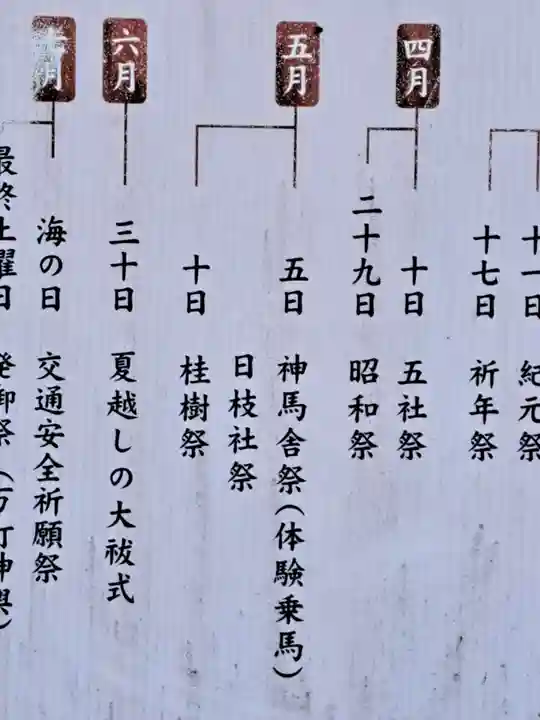 十一日 紀元祭
十七日 祈年祭
四月
十日 五社祭
二十九日 昭和祭
五月
五日 神馬舎祭(体験乗馬)
日枝社祭
十日 桂樹祭
六月
三十日 夏越しの大祓式
七月
海の日 交通安全祈願祭
最終土曜日 発御祭